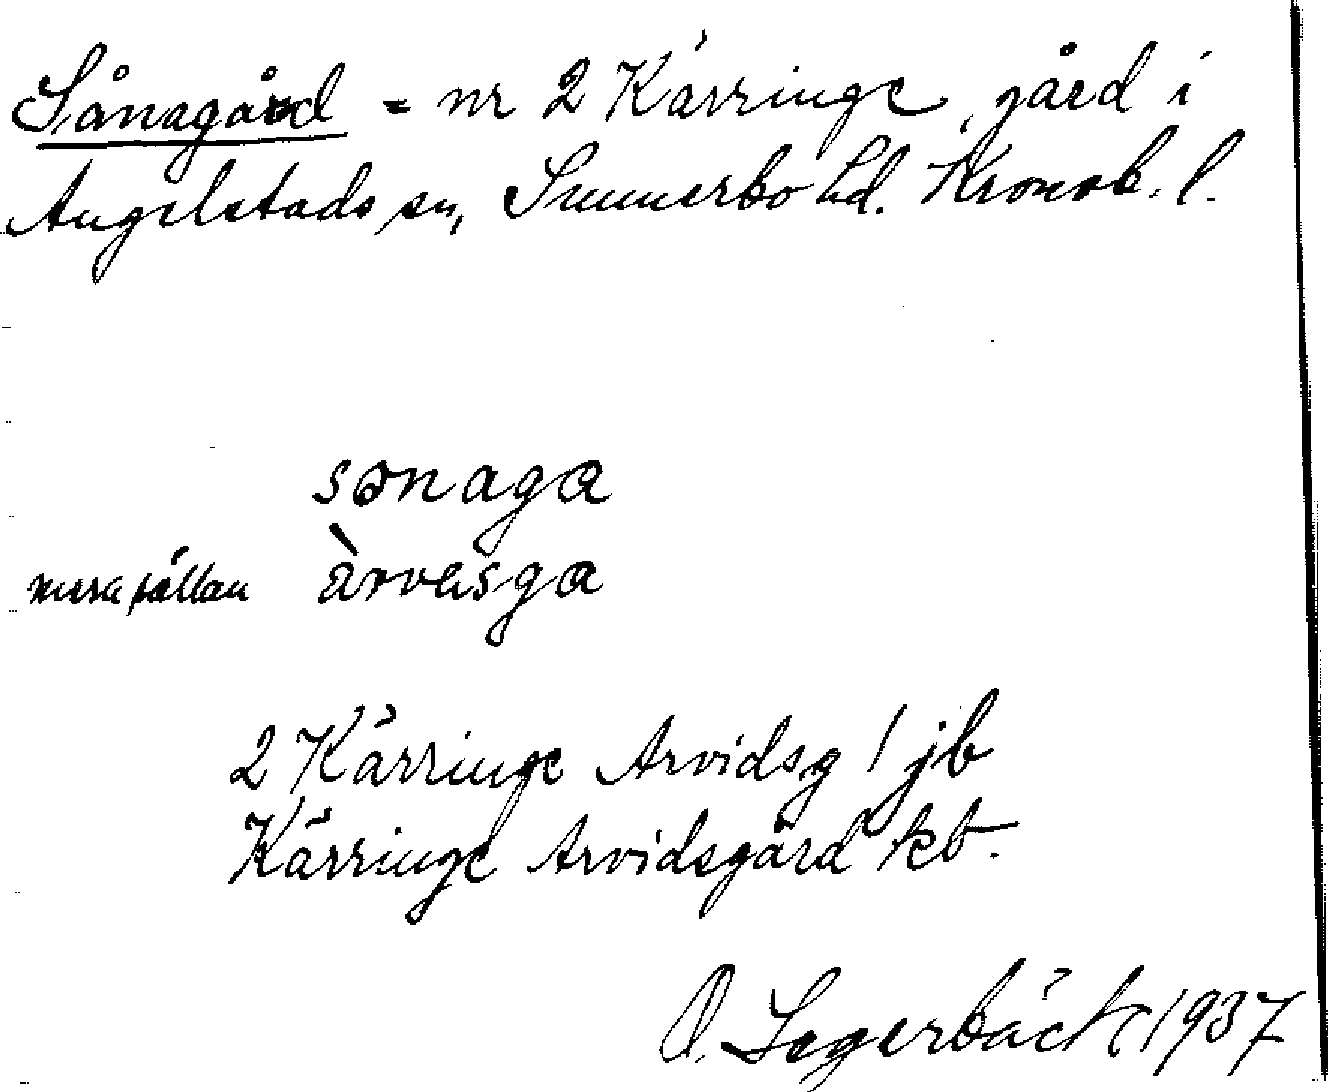 Sånagård = nr 2 Kärringe, gård i
Angelstads sn, Sunnerbo hd. Kronob. l.
sɑnaga
mera sällan àrvasga
2 Kärringe Arvidsg / jb
Kärringe Arvidsgård kb.
O. Lagerbäck 1937